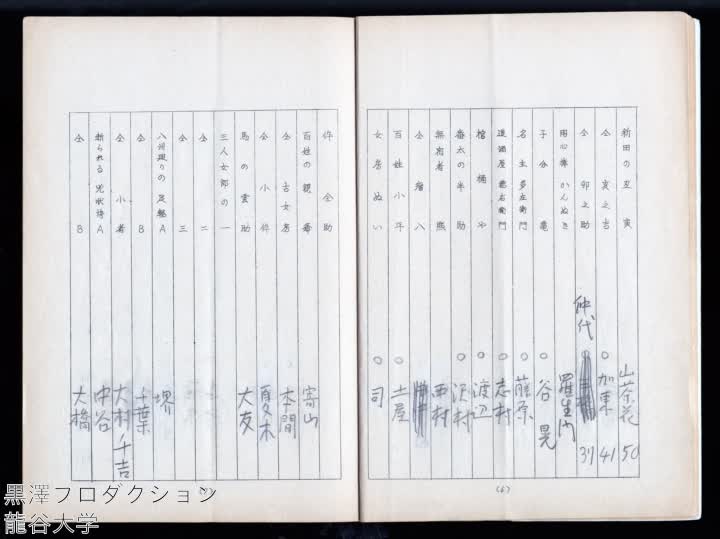 新田の丑寅 山茶花 50
仝 亥之吉 ○ 加東 41
仝 卯之助 ○ 仲代 37
用心棒かんぬき 羅生門
子分亀 ○ 谷 晃
名主多左衛門 ○ 藤原
造酒屋徳右衛門 ○ 志村
棺桶や ○ 渡辺
番太の半助 ○ 沢村
無宿者 熊 西村
仝 瘤八
百姓小平 ○ 土屋
女房ぬい ○ 司
(6)
仝助
百姓の親爺 寄山
仝 古女房 本間
仝 小伜 夏木
馬の雲助 大友
三人女郎の一
仝 二
仝 三
八州廻りの足軽A 堺
仝 B 千葉
仝 小者 大村千吉
斬られる兇状持A 中谷
仝 B 大橋
(7)
黒澤プロダクション
龍谷大学